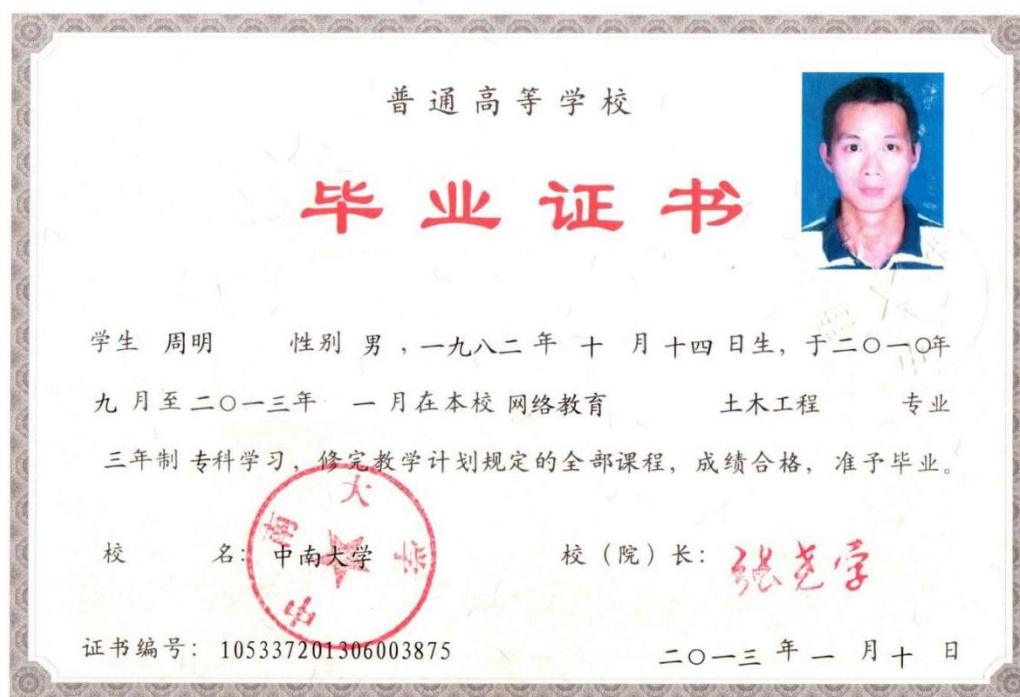 普通高等学校
毕业证书
学生 周明 性别 男 , 一九八二 年 十 月 十四 日生, 于二〇一〇年
九 月至 二〇一三年 一 月在本校 网络教育 土木工程 专业
三年制 专科学习, 修完教学计划规定的全部课程, 成绩合格, 准予毕业。
校 名: 中南大学 校 (院) 长: 张尧学
中南大学
证书编号: 105337201306003875 二〇一三 年 一 月 十 日